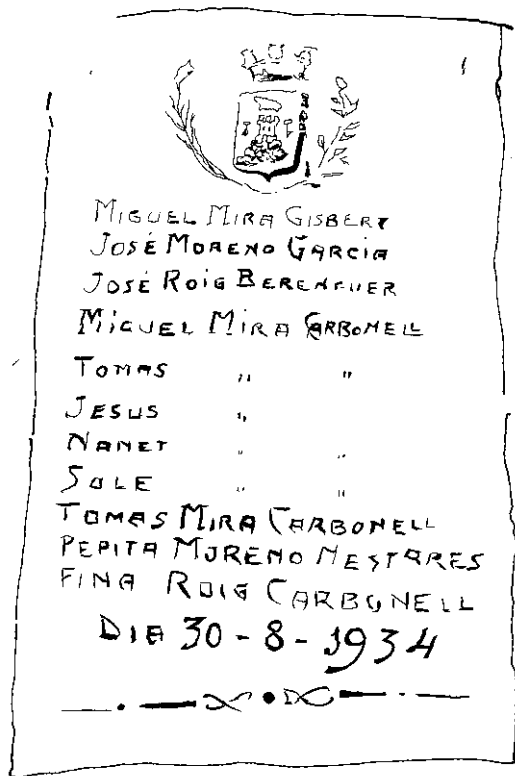 MIGUEL MIRA GISBERT
JOSÉ MORENO GARCIA
JOSÉ ROIG BERENGUER
MIGUEL MIRA CARBONELL
TOMAS " "
JESUS "
NANET " "
SOLE " "
TOMAS MIRA CARBONELL
PEPITA MORENO NESTARES
FINA ROIG CARBONELL
DIA 30-8-1934